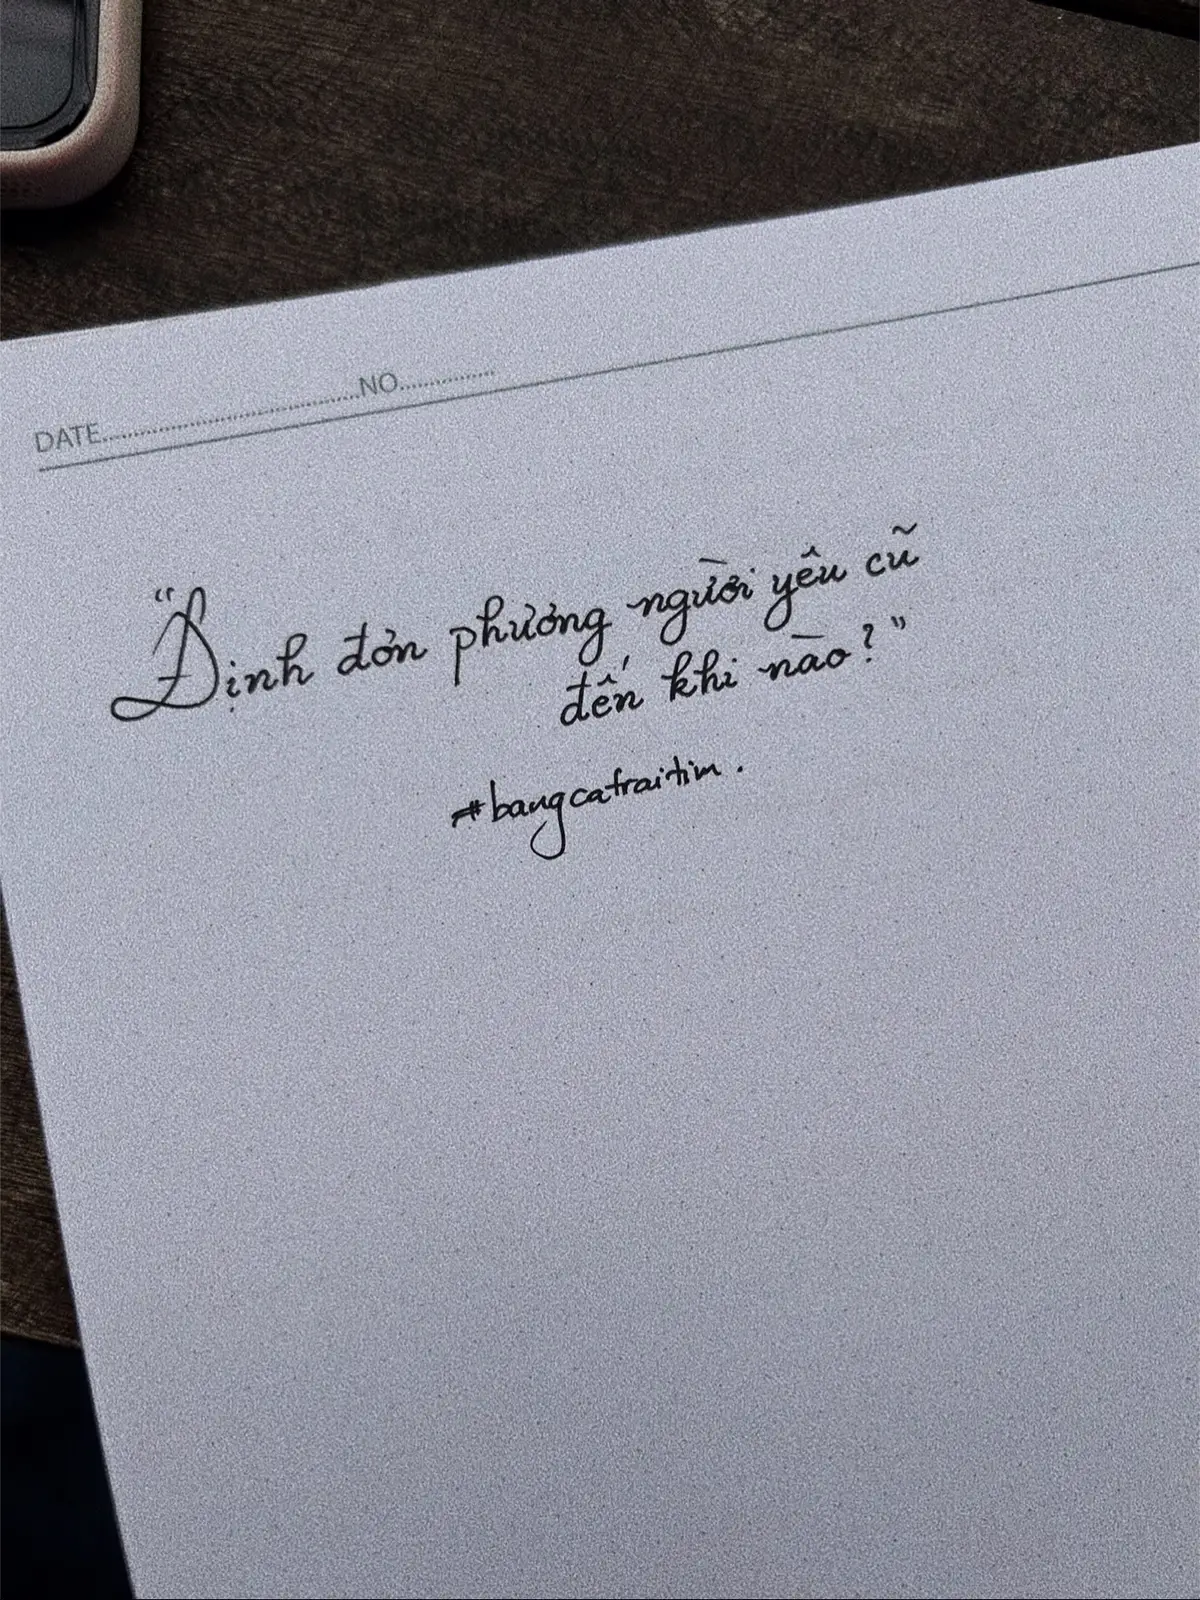 DATE..............................NO..............
"Định đơn phương người yêu cũ
đến khi nào?"
#bangcatraitim.